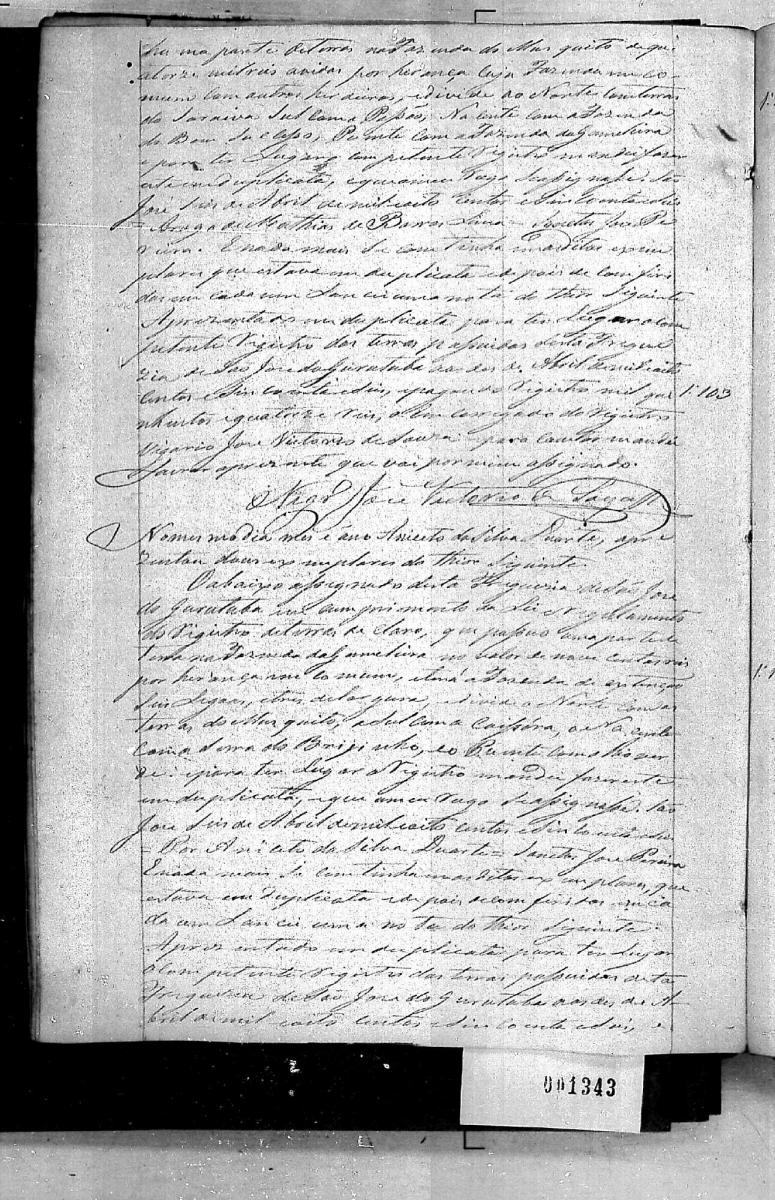 huma parte de terras na Fazenda do Mosquito de qu
atorze mil reis avidas por herança cuja Fazenda he co
mum com outros herdeiros, e divide ao Norte com terras
da Saraiva Sul com a Pessão, Nacente com a Fazenda
do Bom Sucesso, Poente com a Fazenda da Gameleira
e para ter Lugar o competente Registro mandei fazer
este em duplicata, e que a meu rogo se assignasse. São
José seis de Abril de mil oito centos e sincoenta e seis
= Arogo de Mathias de Barros Lima = Santos José Pe
reira. E nada mais se continha em os ditos exem
plares que estava em duplicata e depois de com feri
dos em cada um Lancei uma nota do theor Siguinte
Aprezentado em duplicata para ter Lugar o com
petente Registro das terras possuidas desta Fregue
zia de São José do Gurutuba aos des de Abril de mil oito
centos e sincoenta e seis, e pagou do Registro mil qui 1:103
nhentos e quatorze reis, o Em carregado do Registro
Vigario José Victorio de Souza para constar mandei
Lavrar a prezente que vai por mim assignado.
O Vigr.º José Victorio de Souza
No mesmo dia mes e ano Aniceto da Silva Duarte, apre
zentou dous exemplares do theor Siguinte
O abaixo assignado desta Freguezia de São José
do Gurutuba em cumprimento da Lei e Regulamento
do Registro de terras declaro, que possuo uma parte de
terra na Fazenda da Gameleira no valor de nove centos reis
por herança em comum, e terá a Fazenda de extenção
seis Legoas, e tres de largura, e divide o Norte com as
terras do Mosquito, e a Sul com a Cassóra, o Nacente
com a Serra do Brijinho, e o Poente com o Rio ver
de: e para ter Lugar o Registro mandei fazer este
em duplicata, e que a meu rogo se assignasse. São
José seis de Abril de mil oito centos e sincoenta e seis
= Por Aniceto da Silva Duarte = Santos José Pereira
E nada mais se continha em os ditos exemplares, que
estava em duplicata e depois de com feridos em ca
da um Lancei uma nota do theor Siguinte =
Aprezentado em duplicata para ter Lugar
o competente Registro das terras possuidas desta
Freguezia de São José do Gurutuba aos des de A-
bril de mil oito centos e sincoenta e seis, e
001343